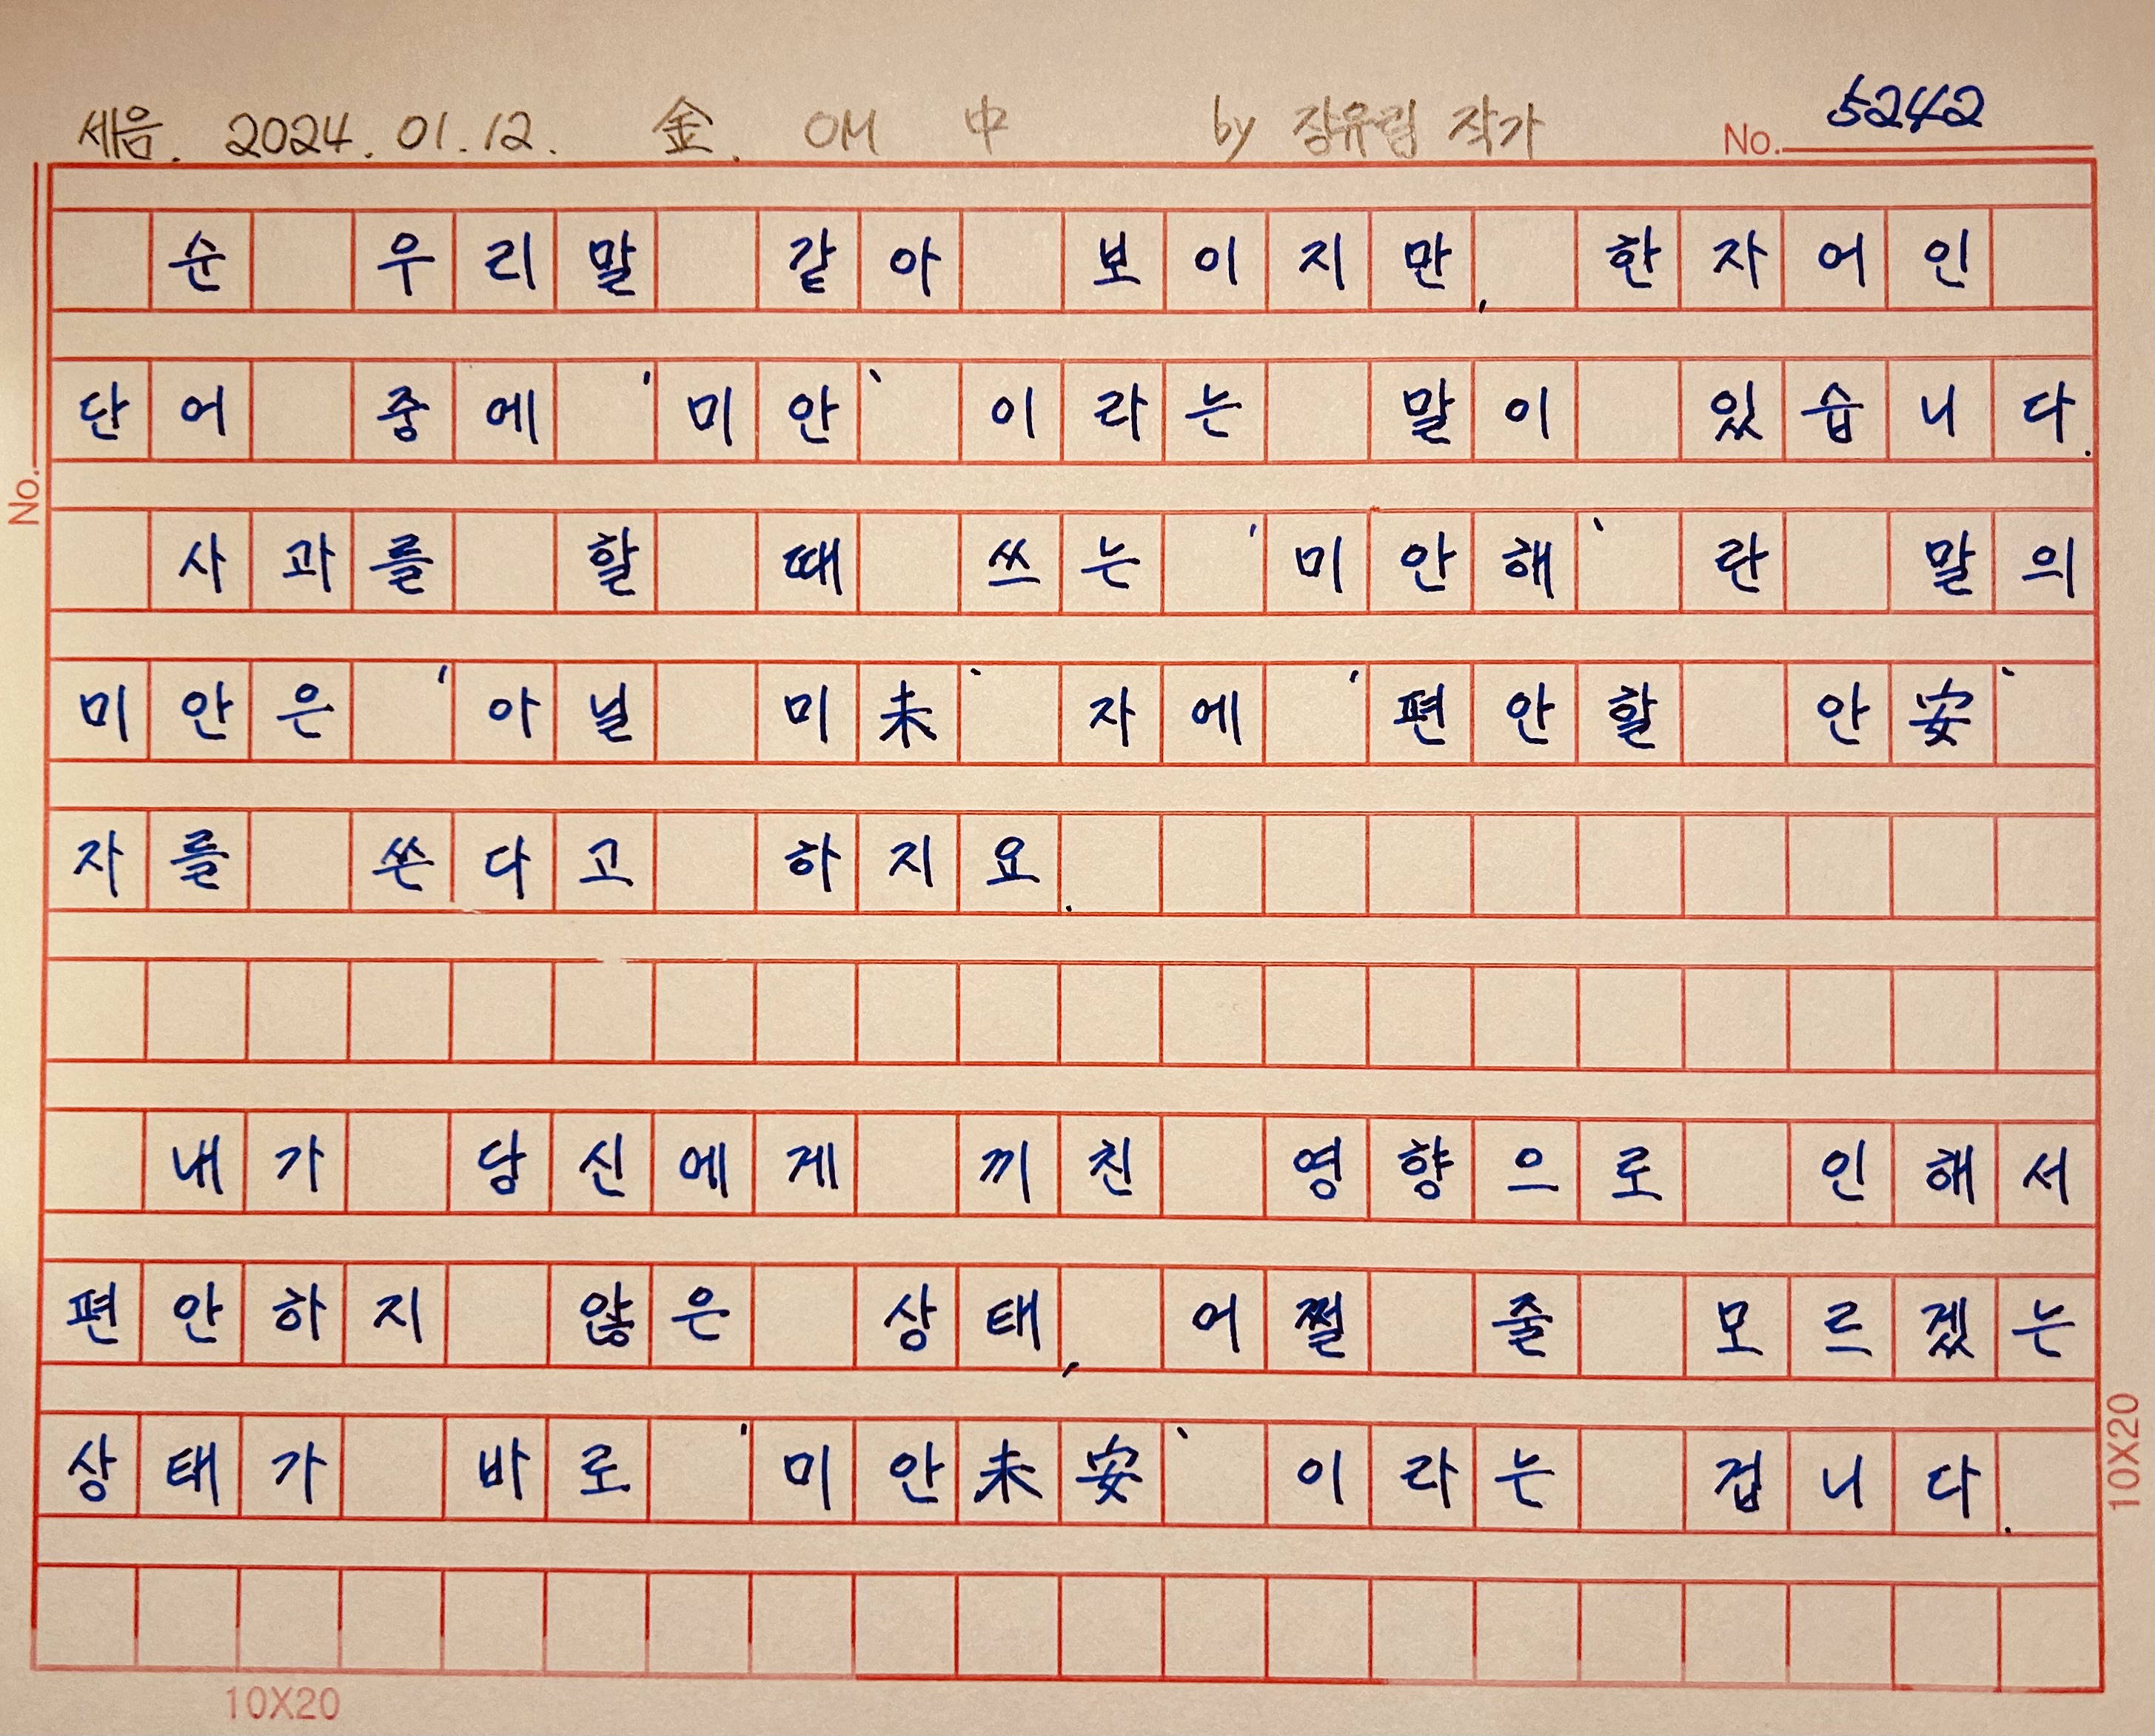 세음. 2024. 01. 12. 金. OM 中 by 장유림 작가 No. 5242
순 우리말 같아 보이지만, 한자어인
단어 중에 '미안' 이라는 말이 있습니다.
사과를 할 때 쓰는 '미안해' 란 말의
미안은 '아닐 미未' 자에 '편안할 안安'
자를 쓴다고 하지요.
내가 당신에게 끼친 영향으로 인해서
편안하지 않은 상태, 어쩔 줄 모르겠는
상태가 바로 '미안未安' 이라는 겁니다.
No.
10X20
10X20